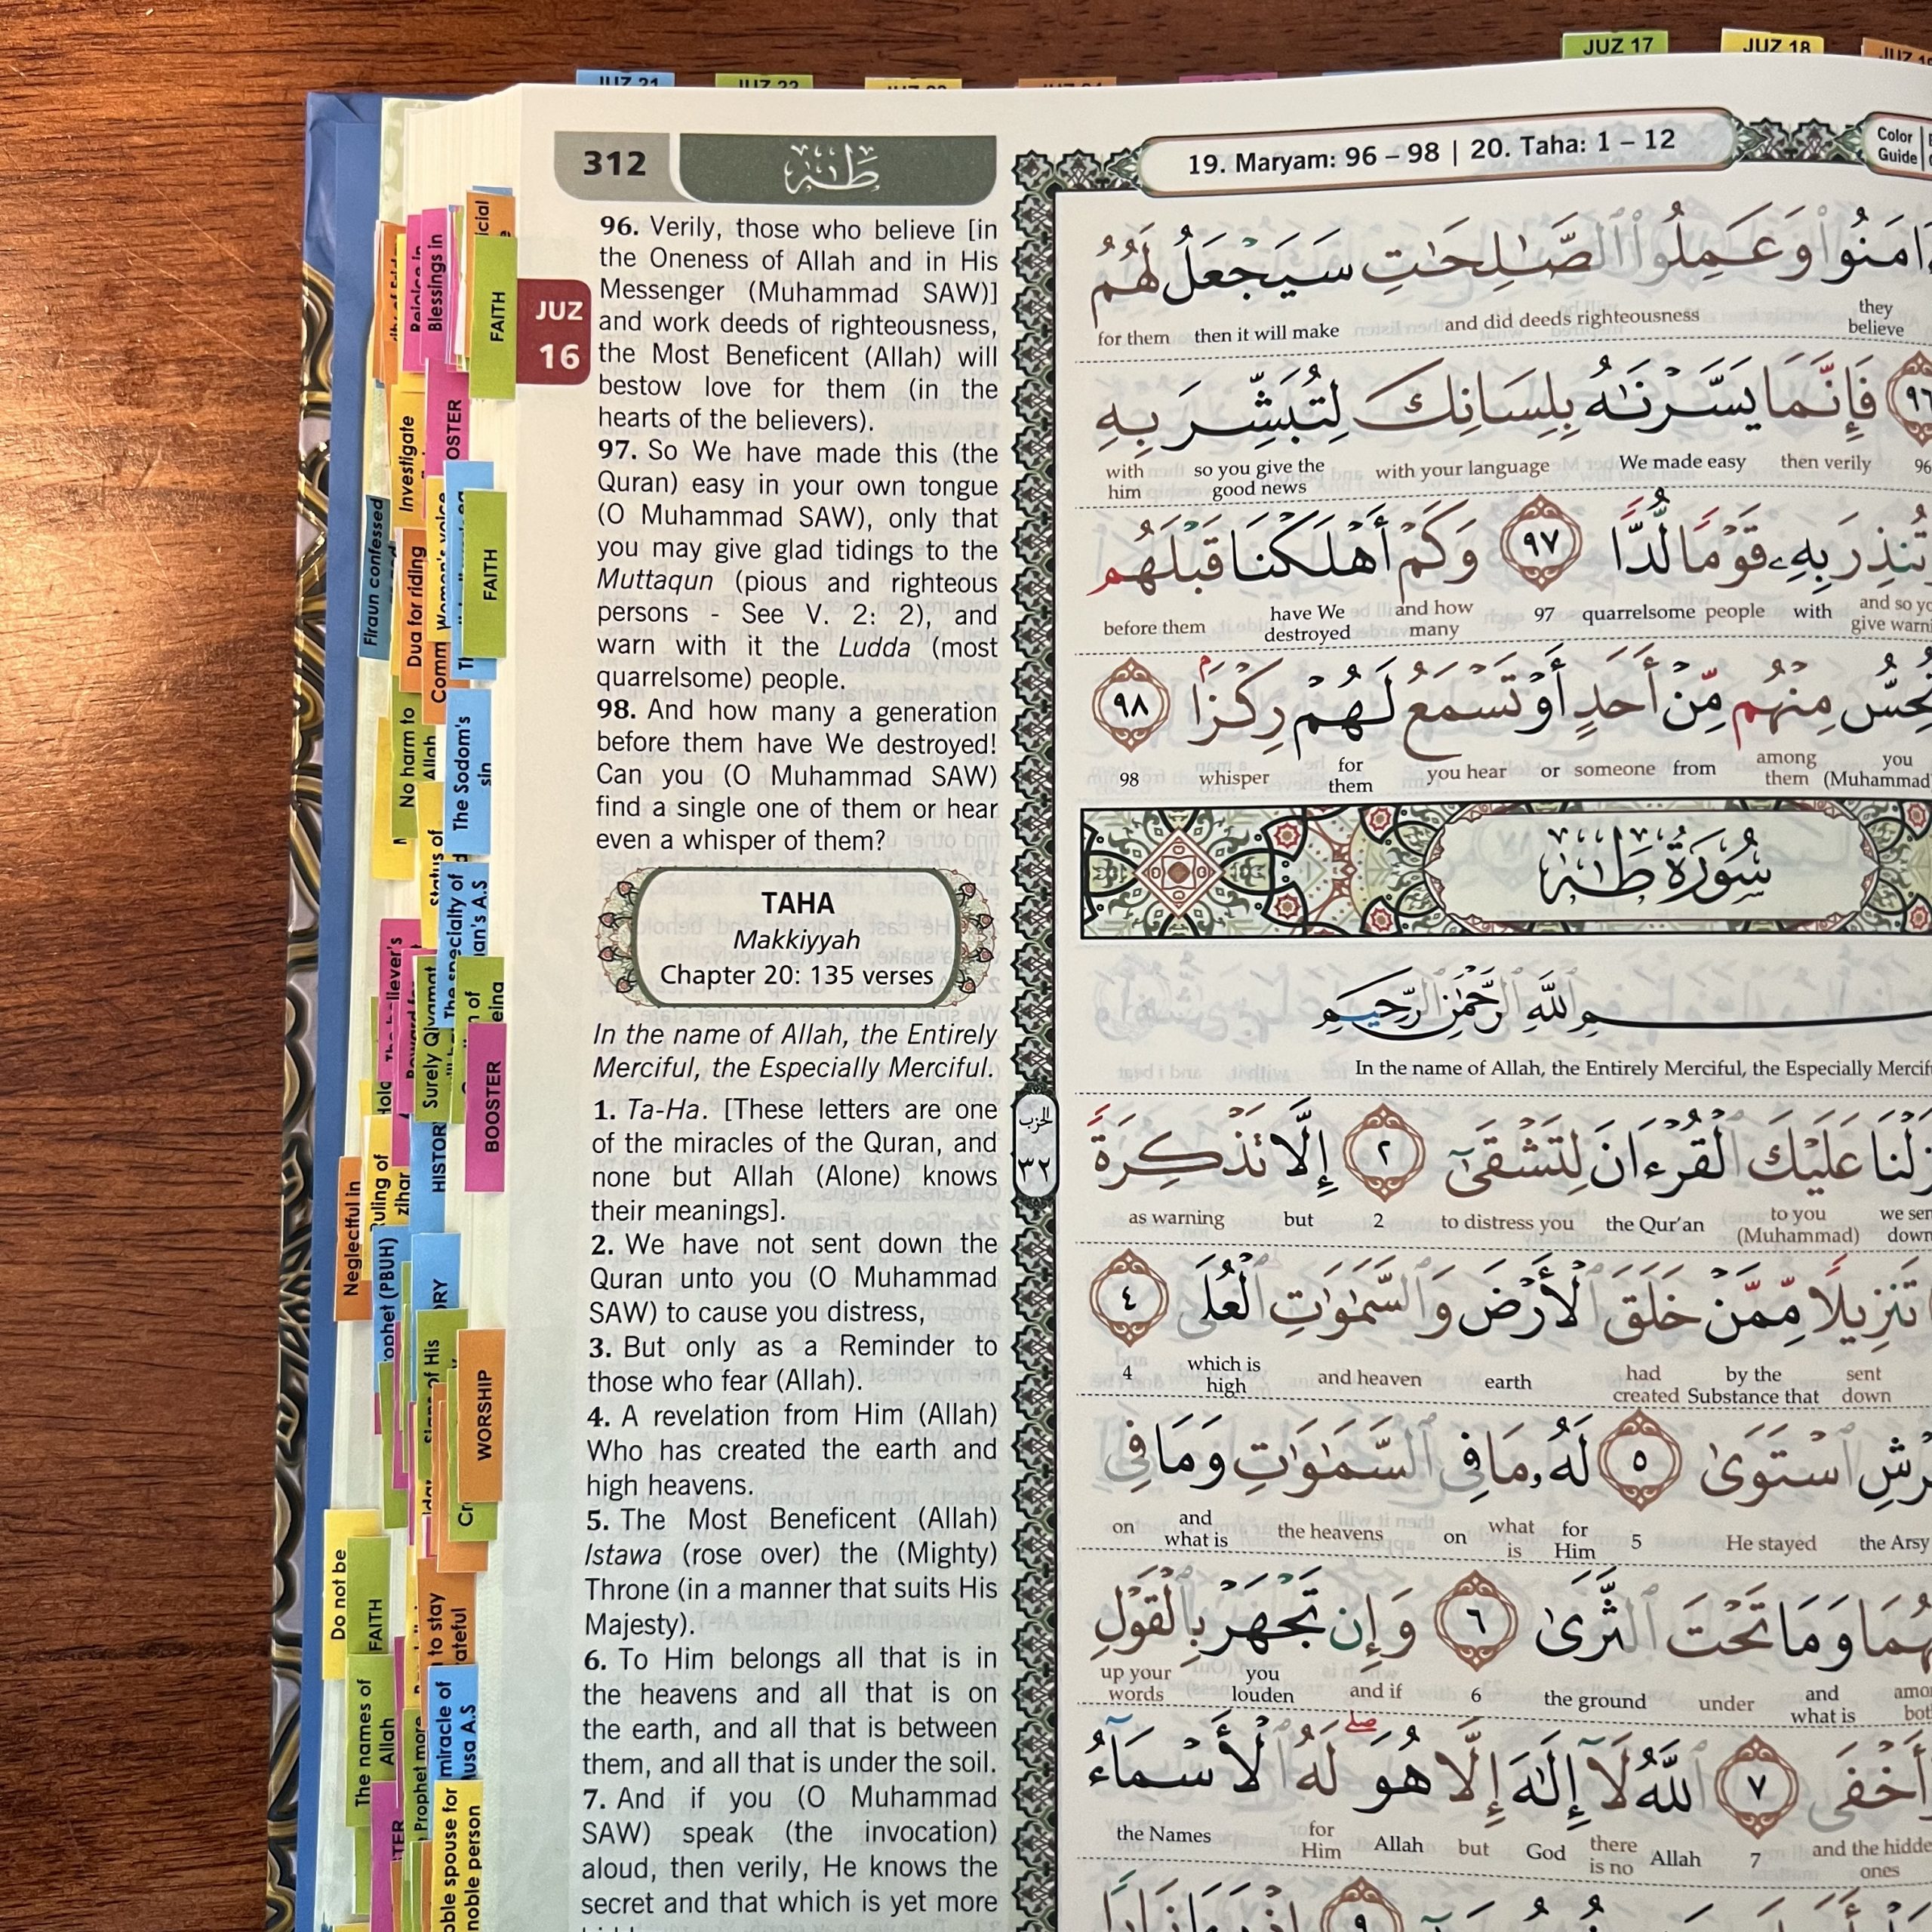 JUZ 21
JUZ 22
JUZ 17
JUZ 18
312
طه
19. Maryam: 96 – 98 | 20. Taha: 1 – 12
Color
Guide
JUZ
16
96. Verily, those who believe [in
the Oneness of Allah and in His
Messenger (Muhammad SAW)]
and work deeds of righteousness,
the Most Beneficent (Allah) will
bestow love for them (in the
hearts of the believers).
97. So We have made this (the
Quran) easy in your own tongue
(O Muhammad SAW), only that
you may give glad tidings to the
Muttaqun (pious and righteous
persons - See V. 2: 2), and
warn with it the Ludda (most
quarrelsome) people.
98. And how many a generation
before them have We destroyed!
Can you (O Muhammad SAW)
find a single one of them or hear
even a whisper of them?
TAHA
Makkiyyah
Chapter 20: 135 verses
In the name of Allah, the Entirely
Merciful, the Especially Merciful.
1. Ta-Ha. [These letters are one
of the miracles of the Quran, and
none but Allah (Alone) knows
their meanings].
2. We have not sent down the
Quran unto you (O Muhammad
SAW) to cause you distress,
3. But only as a Reminder to
those who fear (Allah).
4. A revelation from Him (Allah)
Who has created the earth and
high heavens.
5. The Most Beneficent (Allah)
Istawa (rose over) the (Mighty)
Throne (in a manner that suits His
Majesty).
6. To Him belongs all that is in
the heavens and all that is on
the earth, and all that is between
them, and all that is under the soil.
7. And if you (O Muhammad
SAW) speak (the invocation)
aloud, then verily, He knows the
secret and that which is yet more
الحزب
٣٢
وَعَمِلُوا الصَّـٰلِحَـٰتِ سَيَجْعَلُ لَهُمُ
for them then it will make and did deeds righteousness they
believe
٩٦ فَإِنَّمَا يَسَّرْنَـٰهُ بِلِسَانِكَ لِتُبَشِّرَ بِهِ
with him so you give the good news with your language We made easy then verily 96
تُنذِرَ بِهِۦ قَوْمًا لُّدًّا ٩٧ وَكَمْ أَهْلَكْنَا قَبْلَهُم
before them have We destroyed and how many 97 quarrelsome people with and so
give
مِنْهُم مِّنْ أَحَدٍ أَوْ تَسْمَعُ لَهُمْ رِكْزًا ٩٨
98 whisper for them you hear or someone from among them you
(Muhammad
سُورَةُ طه
اللَّهِ الرَّحْمَـٰنِ الرَّحِيمِ
In the name of Allah, the Entirely Merciful, the Especially
عَلَيْكَ الْقُرْءَانَ لِتَشْقَىٰٓ ٢ إِلَّا تَذْكِرَةً
as warning but 2 to distress you the Qur'an to you (Muhammad) we
down
تَنزِيلًا مِّمَّنْ خَلَقَ الْأَرْضَ وَالسَّمَـٰوَٰتِ الْعُلَى ٤
4 which is high and heaven earth had created by the Substance that sent down
اسْتَوَىٰ ٥ لَهُۥ مَا فِى السَّمَـٰوَٰتِ وَمَا فِى
on and what is the heavens on what is for Him 5 He stayed the Arsy
وَمَا تَحْتَ الثَّرَىٰ ٦ وَإِن تَجْهَرْ بِالْقَوْلِ
up your words you louden and if 6 the ground under and what is
أَخْفَى ٧ اللَّهُ لَآ إِلَـٰهَ إِلَّا هُوَ ۖ لَهُ الْأَسْمَآءُ
the Names for Him Allah but God there is no Allah 7 and the
ones
Blessings in
FAITH
Investigate
Firaun confessed
Dua for riding
FAITH
No harm to
Allah
The Sodom's
sin
Status of
The specialty of
Surely Qiyamat
BOOSTER
Neglectful in
Ruling of
zihar
WORSHIP
Do not be
FAITH
The names of
Allah
Prophet more
miracle of
Musa A.S
noble person